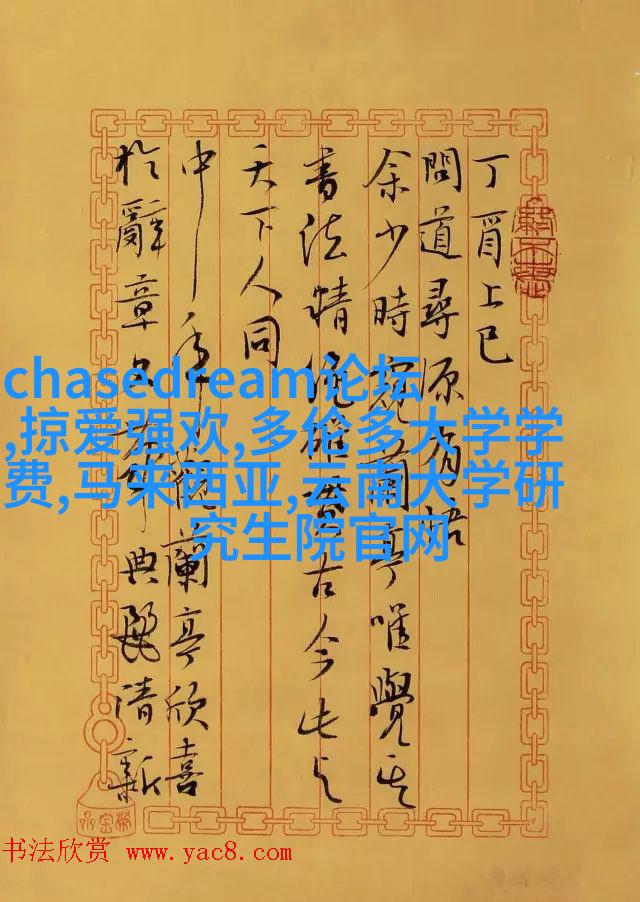 丁酉上巳
問道尋源有悟
余少時觀蘭亭唯覺其
書法精絕雄貫古今此與
天下人同
中年觀蘭亭欣喜
於辭章典麗清新
chasedream论坛
,掠爱强欢,多伦多大学学
费,马来西亚,云南大学研
究生院官网
书法欣赏 www.yac8.com